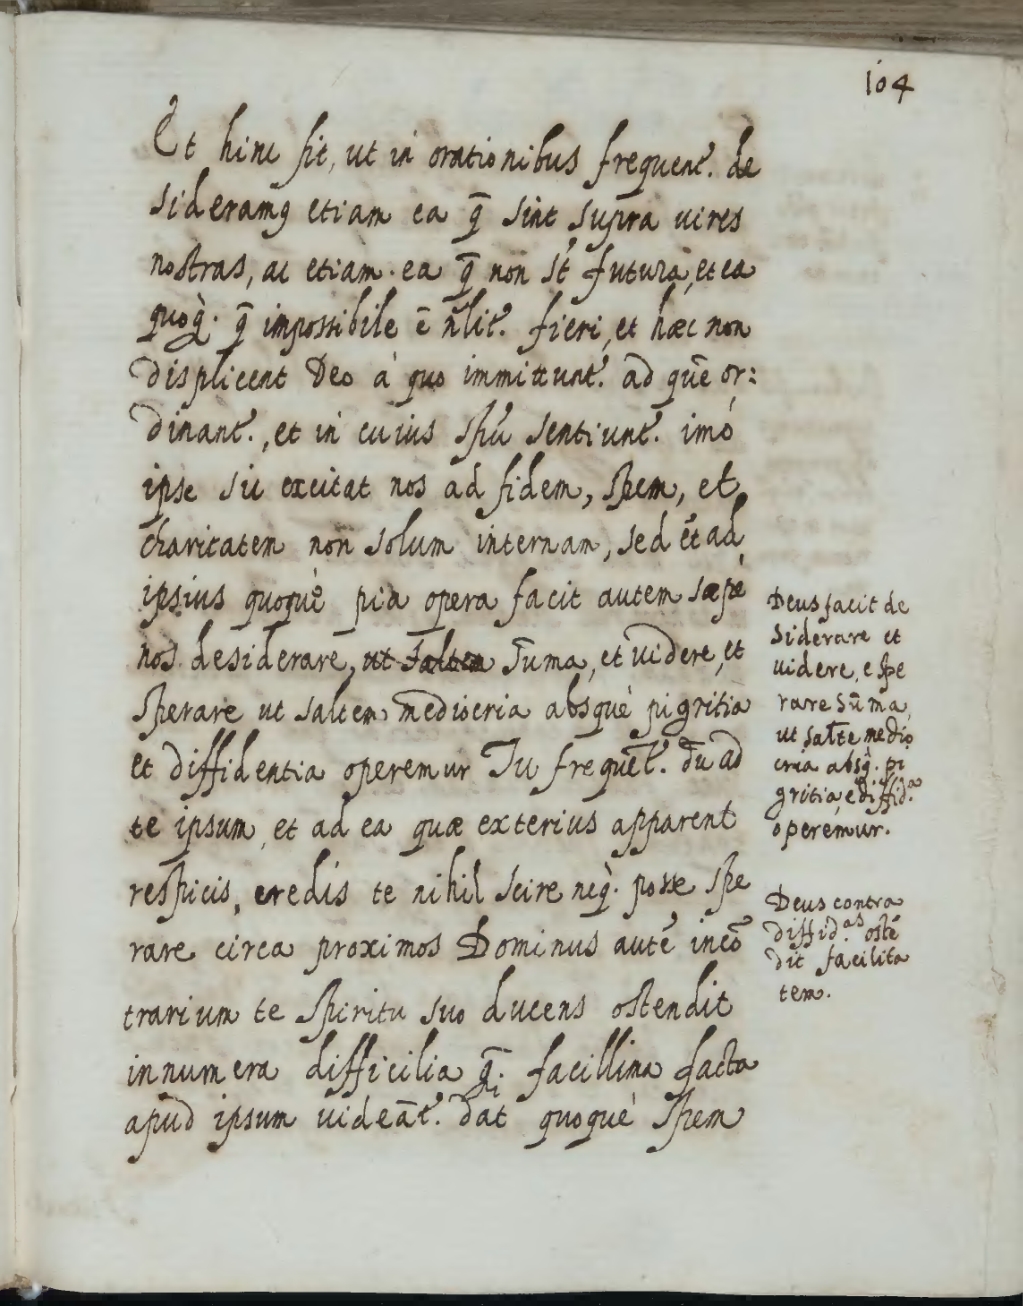 104
Et hinc fit, ut in orationibus frequent.ͬ de
sideramꝰ etiam ea q̄ sint supra uires
nostras, ac etiam ea q̄ non st̄ futura, et ea
quoq̀. q̄ impossibile ē nlit.ͬ fieri, et hæc non
displicent Deo à quo immittunt.ͬ ad quē or:
dinant.ͬ, et in cuius spū sentiunt.ͬ imò
ipse sic excitat nos ad fidem, spem, et
charitatem non solum internam, sed ēt ad
ipsius quoquè pia opera facit autem sæpè
nos desiderare, ut saltem sūma, et uidere, et
sperare ut saltem mediocria absquè pigritia
et diffidentia operemur Tu frequēt.ͬ dū ad
te ipsum, et ad ea quæ exterius apparent
respicis, credis te nihil scire neq̀. posse spe
rare circa proximos Dominus autē incō
trarium te spiritu suo ducens ostendit
innumera difficilia q̄. facillima facta
apud ipsum uideāt.ͬ dat quoquè spem
Deus facit de
siderare et
uidere, e spe
rare sūma,
ut saltē medio
cria absq̀. pi
gritia, e diffid.ᵃ
operemur.
Deus contra
diffid.ᵃˢ ostē
dit facilita
tem.